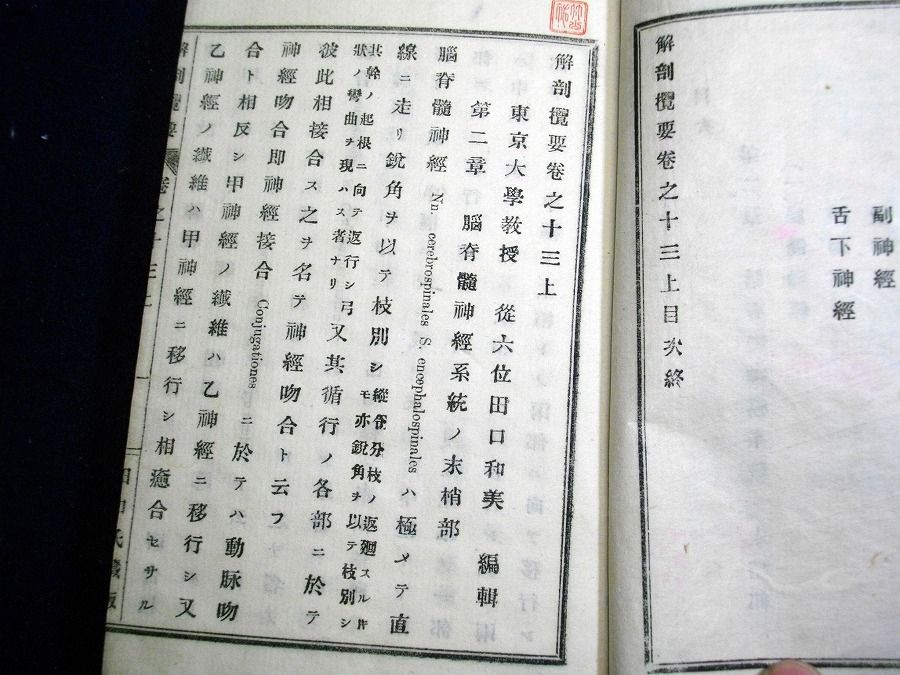 副神經
舌下神經
解剖攬要卷之十三上目次終
解剖攬要卷之十三上
東京大學教授 從六位田口和美 編輯
第二章 腦脊髓神經系統ノ末梢部
腦脊髓神經 Nn. cerebrospinales S. encephalospinales ハ極メテ直
線ニ走リ銳角ヲ以テ枝別シ縱令分枝ノ返廻スル片モ亦銳角ヲ以テ枝別シ
其幹ノ起根ニ向テ返行シ弓狀ノ彎曲ヲ現ハス者ナリ又其循行ノ各部ニ於テ
彼此相接合ス之ヲ名テ神經吻合ト云フ
神經吻合即神經接合 Conjugationes ニ於テハ動脉吻
合ト相反シ甲神經ノ纖維ハ乙神經ニ移行シ又
乙神經ノ纖維ハ甲神經ニ移行シ相癒合セサル
解剖攬要 卷之十三上 一 田口氏藏版